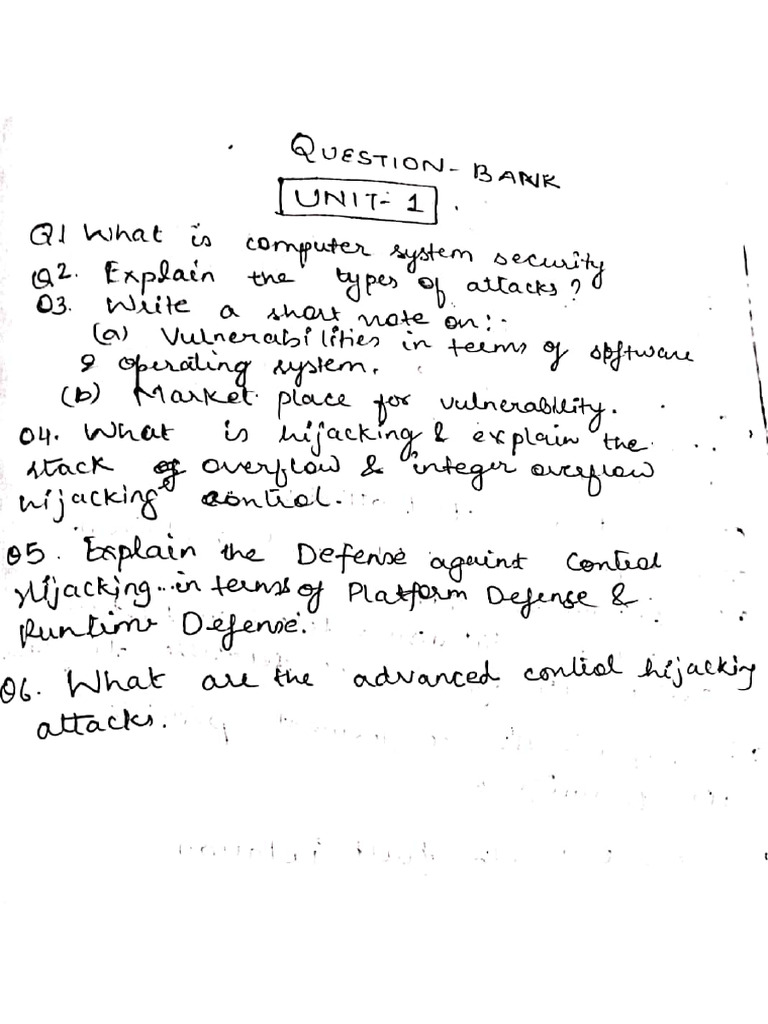 QUESTION-BANK
UNIT-1
Q1 What is computer system security
Q2. Explain the types of attacks?
Q3. Write a short note on:-
(a) Vulnerabilities in terms of software
& operating system.
(b) Market place for vulnerability.
Q4. What is hijacking & explain the
stack overflow & integer overflow
hijacking control.
Q5. Explain the Defense against Control
Hijacking in terms of Platform Defense &
Runtime Defense.
Q6. What are the advanced control hijacking
attacks.